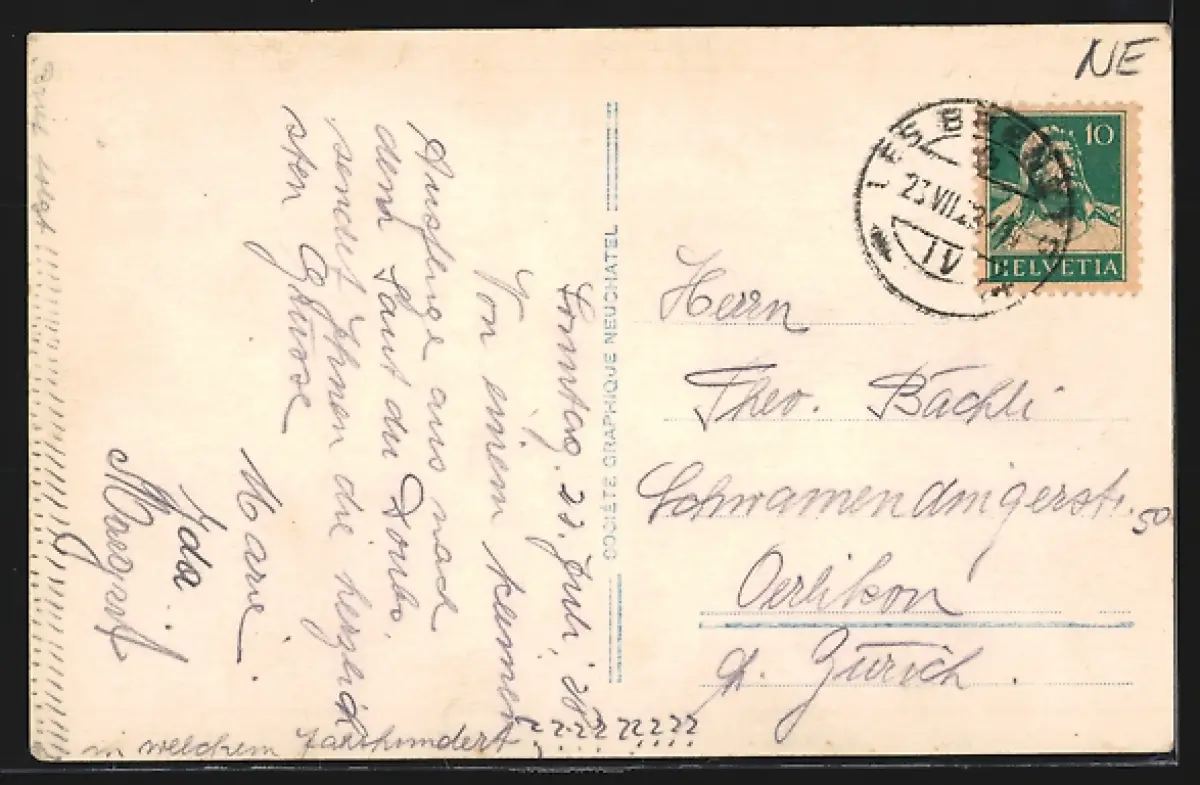 Sonntag. 22. Juli, 28
Von einem kleinen
Ausfluge aus nach
dem Saut du Doubs,
sendet Ihnen die herzlich
sten Grüsse
Marie.
Ida
in welchem Jahrhundert
SOCIÉTÉ GRAPHIQUE NEUCHATEL
NE
LES BRENETS
23 VII
IV
10
HELVETIA
Herrn
Theo. Bächli
Schwamendingerstr. 50
Oerlikon
Zürich.